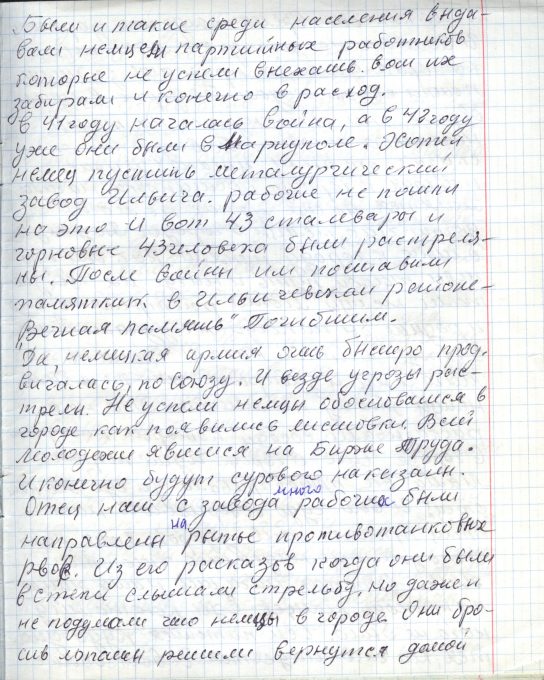 Были и такие среди населения выда-
вали немцем партийных работников
которые не успели выехать. вот их
забирали и конечно в расход.
в 41 году началась война, а в 42 году
уже они были в Мариуполе. Хотел
немец пустить металургический
завод Ильича. рабочие не пошли
на это и вот 43 сталевары и
горновые 43 человека были растреля-
ны. После войны им поставили
памятник в Ильичевском районе-
"Вечная память" Погибшим.
Да, немецкая армия очь быстро прод-
вигалась, по Союзу. И везде угрозы рас-
трели. Не успели немцы обосноватся в
городе как появились листовки. Всей
молодежи явится на Биржу Труда.
И конечно будут сурового наказаны.
Отец наш с завода много рабочих были
направлены на рытье противотанковых
рвов. Из его рассказов когда они были
в степи слышали стрельбу, но даже и
не подумали что немцы в городе. Они бро-
сив лопаты решили вернутся домой